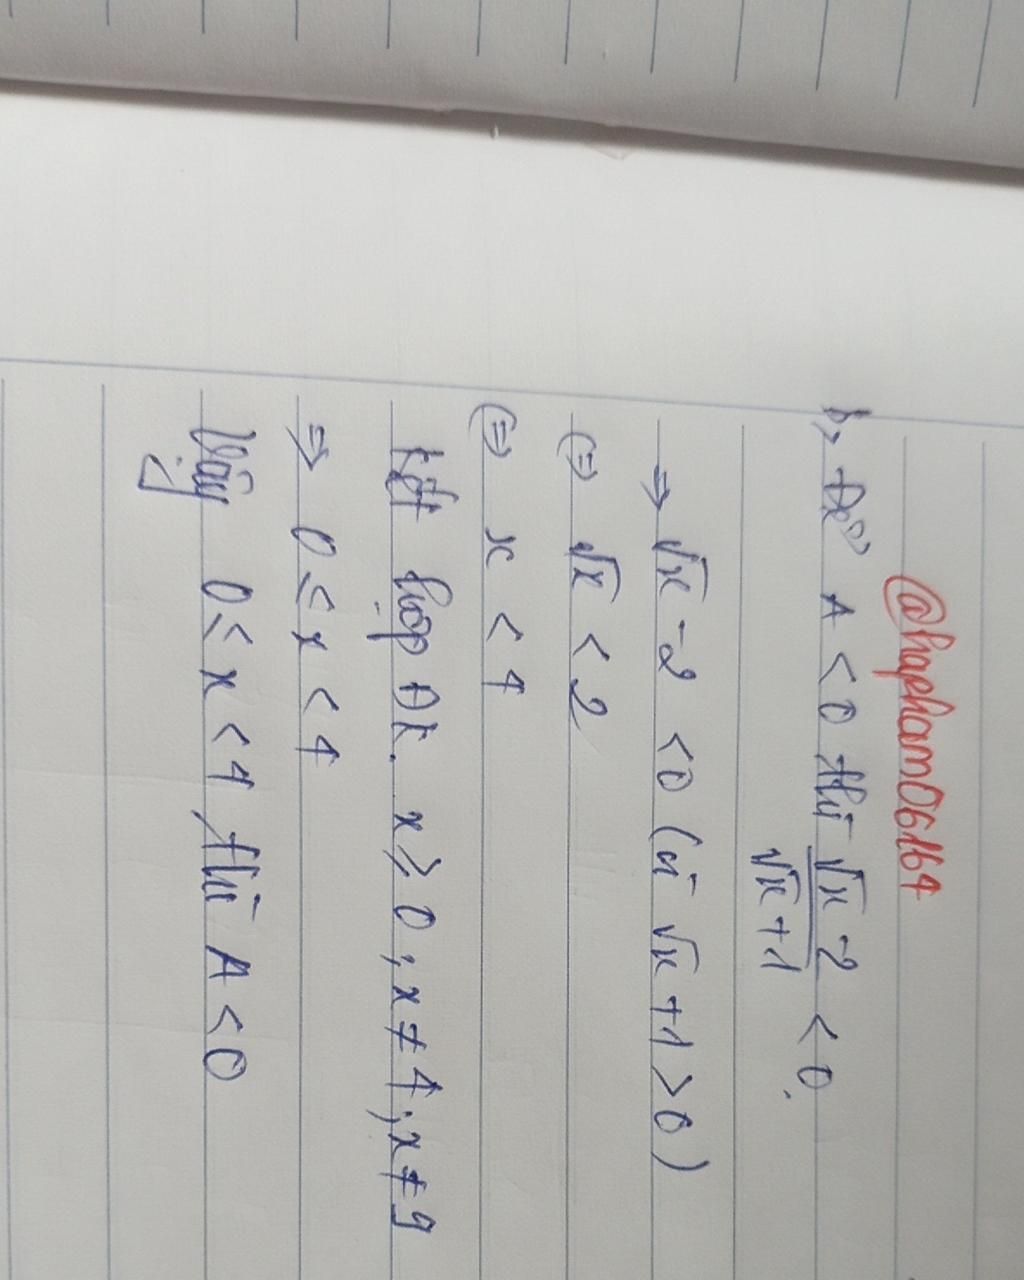 @hapham06164
b, Để A < 0 thì √x -2 / √x +1 < 0.
⇒ √x -2 < 0 (vì √x +1 > 0)
⇔ √x < 2
⇔ x < 4
Kết hợp ĐK. x ≥ 0 ; x ≠ 4 ; x ≠ 9
⇒ 0 ≤ x < 4
Vậy 0 ≤ x < 4 thì A < 0